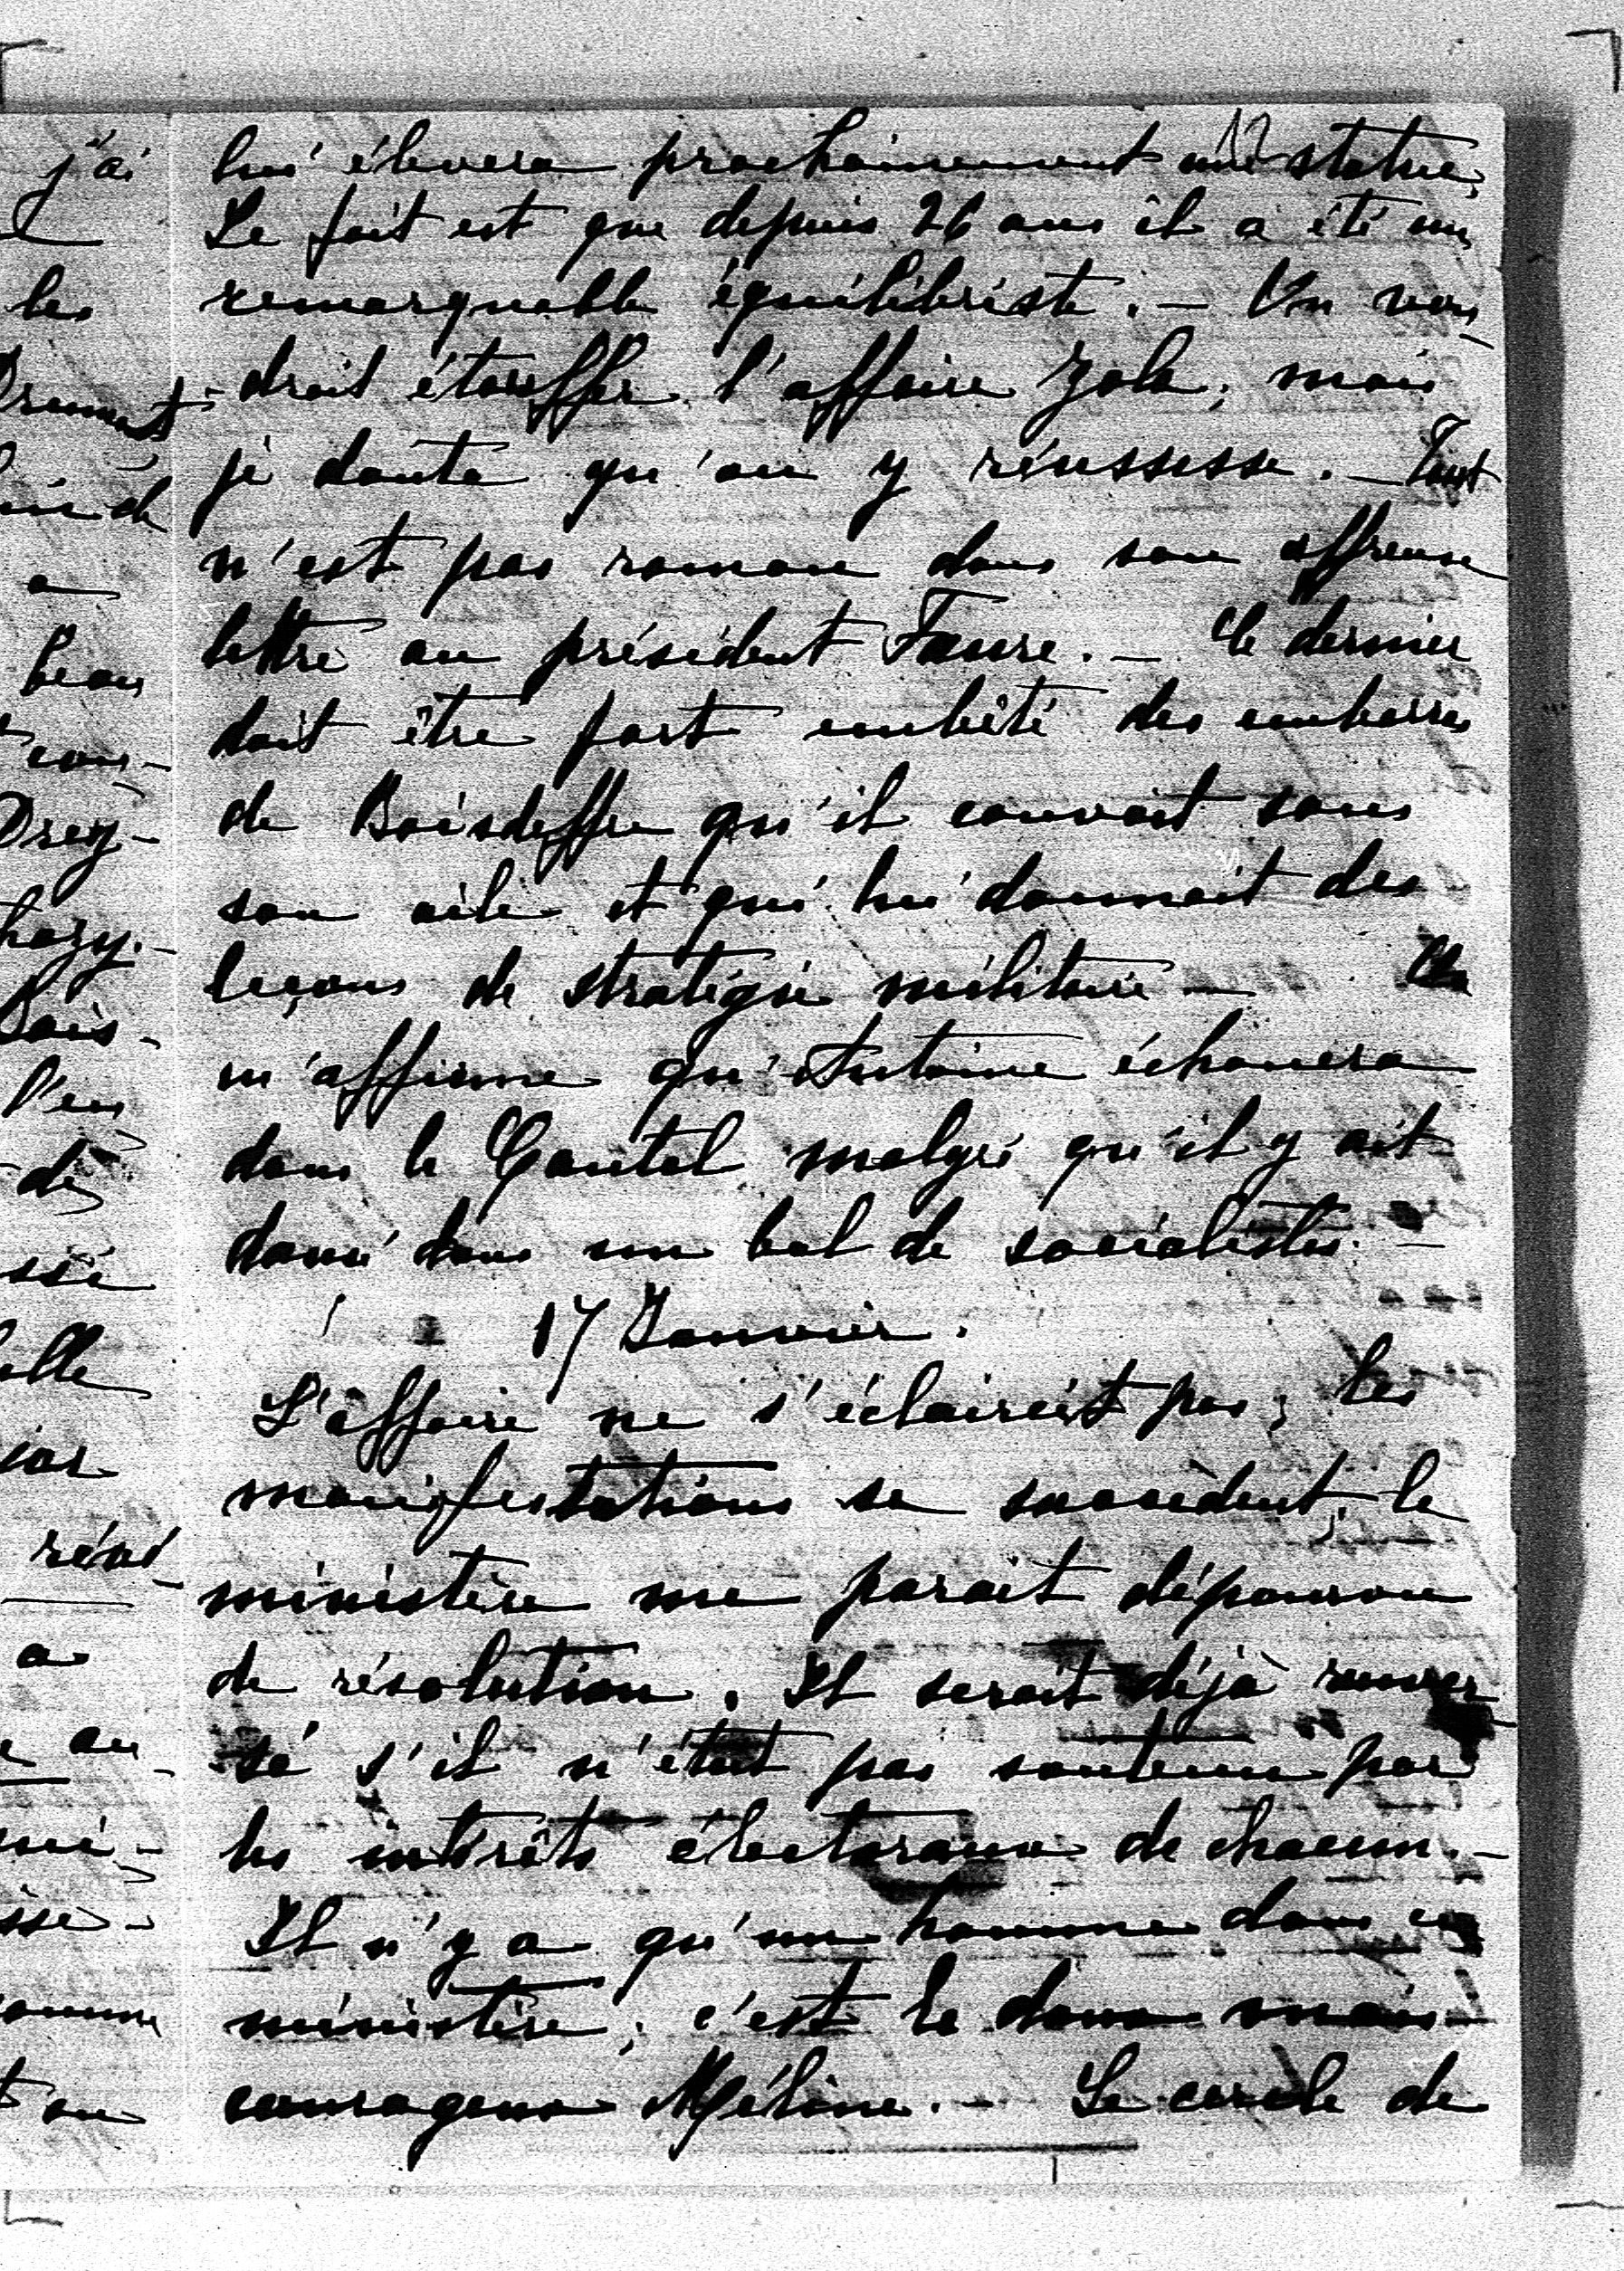 12
lui élevera prochainement une statue,
Le fait est que depuis 26 ans il a été un
remarquable équilibriste. — On vou-
drait étouffer l'affaire Zola, mais
je doute qu'on y réussisse. — Tout
n'est pas roman dans son affreuse
lettre au président Faure. — Ce dernier
doit être fort embêté des embarras
de Boisdeffre qu'il couvait sous
son aile et qui lui donnait des
leçons de stratégie militaire — On
m'affirme qu'Antoine échouera
dans le Cantal malgré qu'il y ait
dansé dans un bal de socialistes. —
17 Janvier.
L'affaire ne s'éclaircit pas; les
manifestations se succèdent, le
ministère me parait dépourvu
de résolution. Il serait déjà renver-
sé s'il n'était pas soutenu par
les intérêts électoraux de chacun. —
Il n'y a qu'un homme dans ce
ministère, c'est le doux mais
courageux Méline. — Le cercle de